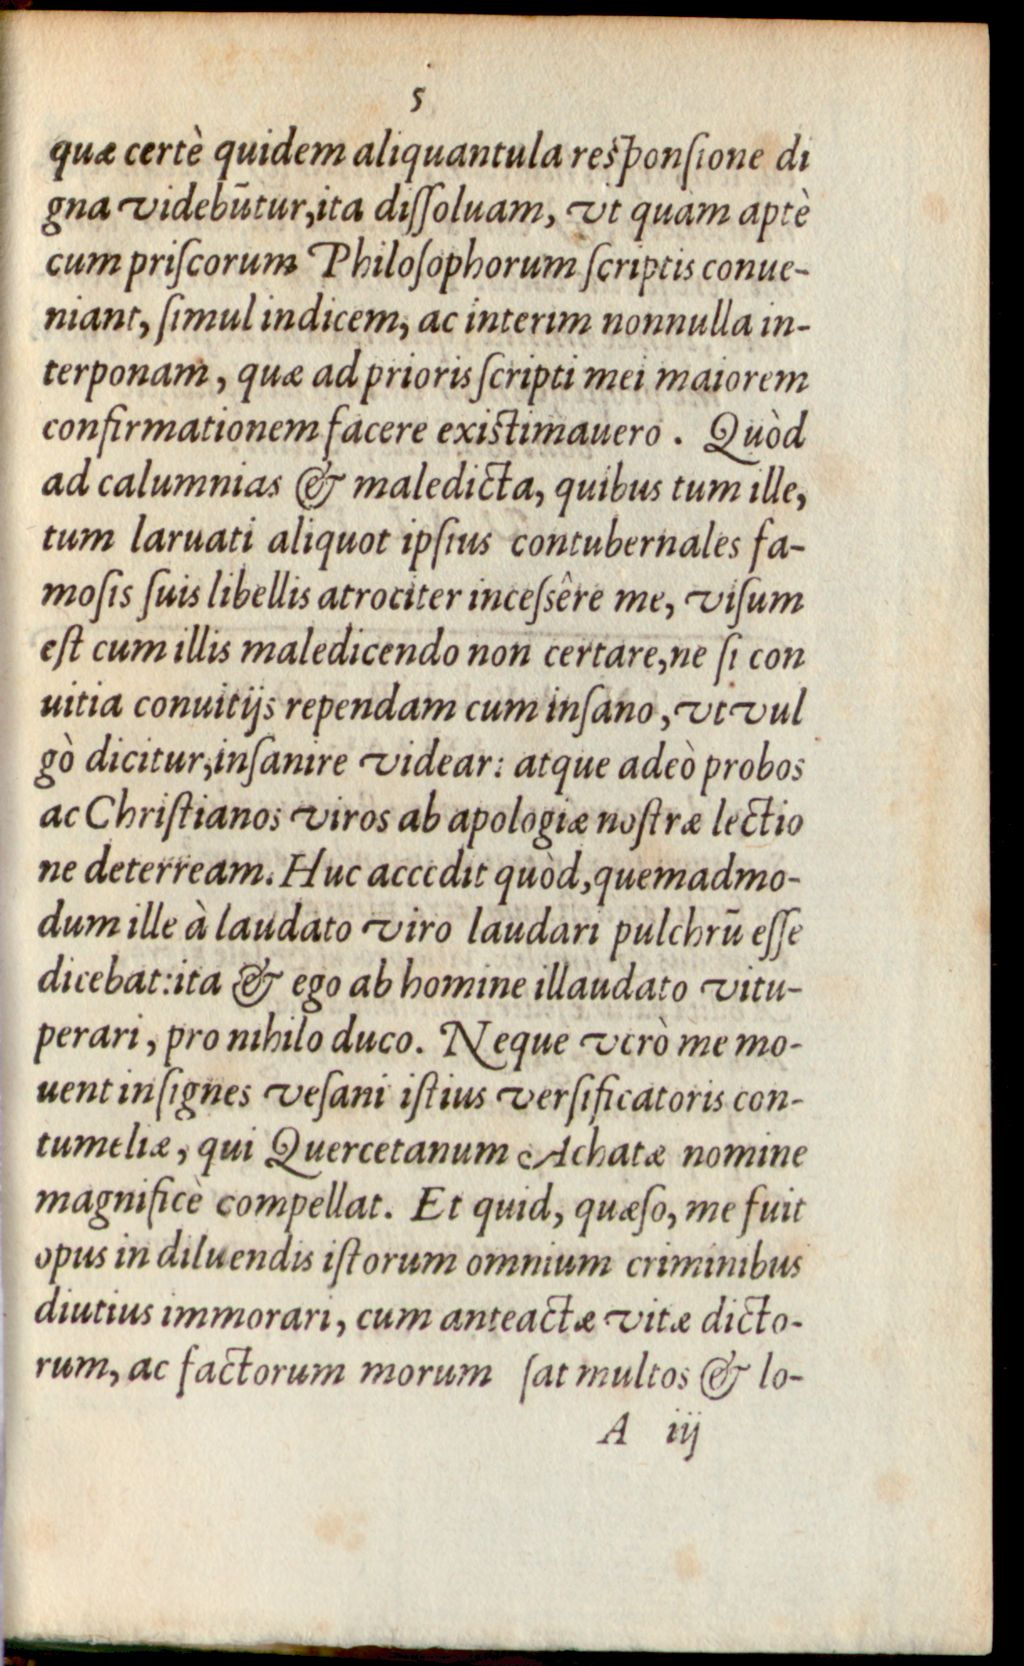 5
quæ certè quidem aliquantula responſione di
gna videbũtur, ita diſſoluam, vt quàm aptè
cum priſcorum Philoſophorum ſcriptis conue-
niant, ſimul indicem, ac interim nonnulla in-
terponam, quæ ad prioris ſcripti mei maiorem
confirmationem facere existimauero. Quòd
ad calumnias & maledicta, quibus tum ille,
tum laruati aliquot ipſius contubernales fa-
moſis ſuis libellis atrociter inceſsêre me, viſum
eſt cum illis maledicendo non certare, ne ſi con
uitia conuitijs rependam cum inſano, vt vul
gò dicitur, inſanire videar: atque adeò probos
ac Chriſtianos viros ab apologiæ noſtræ lectio
ne deterream. Huc accedit quòd, quemadmo-
dum ille à laudato viro laudari pulchrũ eſſe
dicebat: ita & ego ab homine illaudato vitu-
perari, pro nihilo duco. Neque verò me mo-
uent inſignes veſani iſtius verſificatoris con-
tumeliæ, qui Quercetanum Achatæ nomine
magnificè compellat. Et quid, quæſo, me fuit
opus in diluendis iſtorum omnium criminibus
diutius immorari, cum anteactæ vitæ dicto-
rum, ac factorum morum ſat multos & lo-
A iij